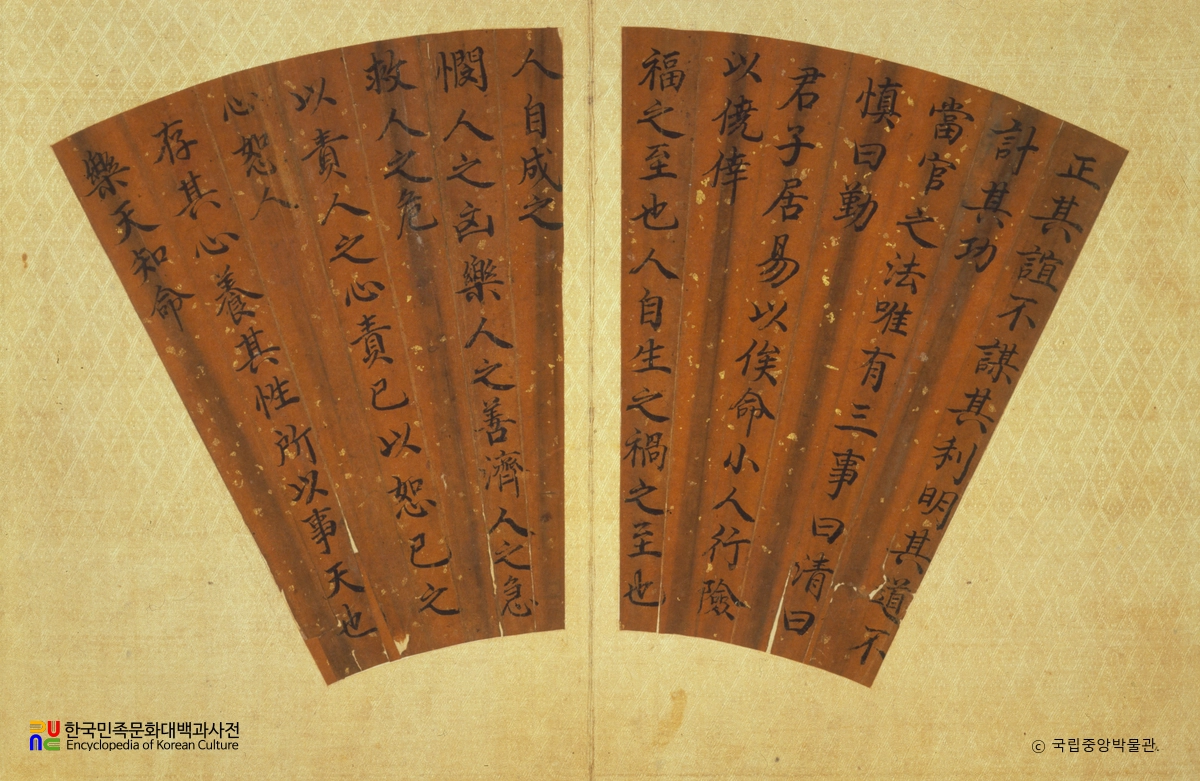 正其誼不謀其利明其道不
計其功
當官之法唯有三事曰清曰
慎曰勤
君子居易以俟命小人行險
以僥倖
福之至也人自生之禍之至也
人自成之
憫人之凶樂人之善濟人之急
救人之危
以責人之心責己以恕己之
心恕人
存其心養其性所以事天也
樂天知命
한국민족문화대백과사전
Encyclopedia of Korean Culture
ⓒ 국립중앙박물관.